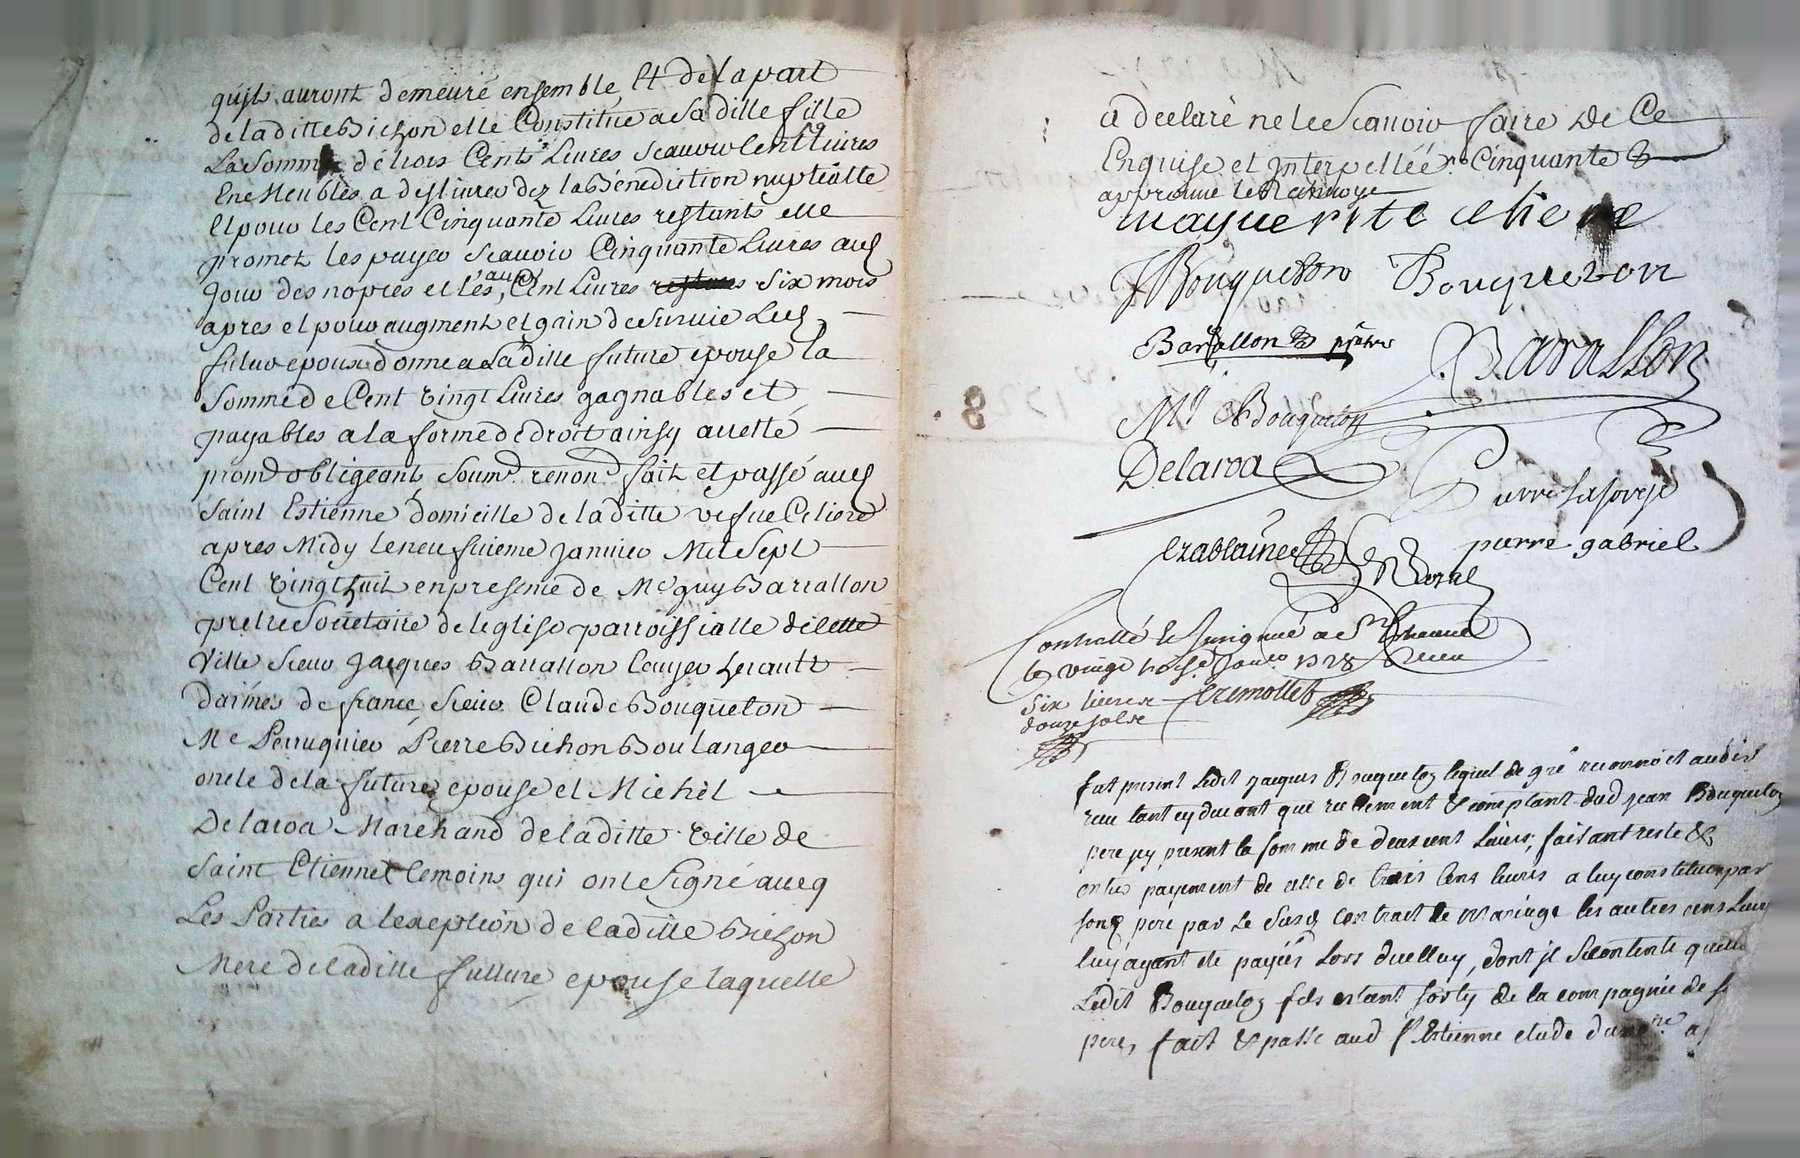 qu'ils auront demeuré ensemble Et de la part
de laditte Bichon elle Constitue a Sa ditte fille
La Somme de trois Cents Livres Scauoir Cent Livres
En Meubles a deslivrer dez la Bénédiction nuptialle
Et pour les Cent Cinquante Livres restants elle
promet les payer Scauoir Cinquante Livres aud
Jour des nopces et les autres Cent Livres Six mois
apres et pour augment et gain de Survie Led
futur epoux donne a Laditte future epouse La
Somme de Cent vingt Livres gagnables et
payables a la forme de droit ainsy a etté
prom obligeant Soum renond fait et passé aud
Saint Estienne domicille de laditte vefue Celiere
apres Midy le neufuieme Januier Mil Sept
Cent vingt huit en presence de Me guy Barrallon
prestre Societaire de leglise parroissialle de cette
Ville Sieur Jacques Barrallon Ecuyer heraut
d'armes de france Sieur Claude Bouqueton
Me Perruquier Pierre Bichon Boulanger
oncle de la future epouse et Michel
Delaroa Marchand de laditte Ville de
Saint Etienne temoins qui ont Signé aueq
Les Parties a lexeption de laditte Bichon
Mere de laditte future epouse laquelle
a declaré ne le Scauoir faire de Ce
Enquise et Interpellée Cinquante &
approuué le Renuoye
marguerite celiere
J Bouqueton Bouqueton
Barallon prêtre
Barallon
Mr Bouqueton
Delaroa
pierre gabriel
Contrôllé & Insinué a St Etienne
le vingt troise Januer 1728 Receu
Six livres
douze sols
Cremollet
fut present Ledit Jacques Bouqueton lequel de gré reconnoit auoir
receu tant cy deuant que reellement & comptant dud Jean Bouqueton
pere icy present la somme de deux cent Liures, faisant reste &
entier payement de celle de trois Cens liures a luy constituee par
son pere par le susd contract de Mariage les autres cens Liures
luy ayant ete payés Lors d'icelluy, dont il se contente
Ledit Bouqueton fils estant sorty de la compagnie de
pere, fait & passé aud St Estienne etude du nore